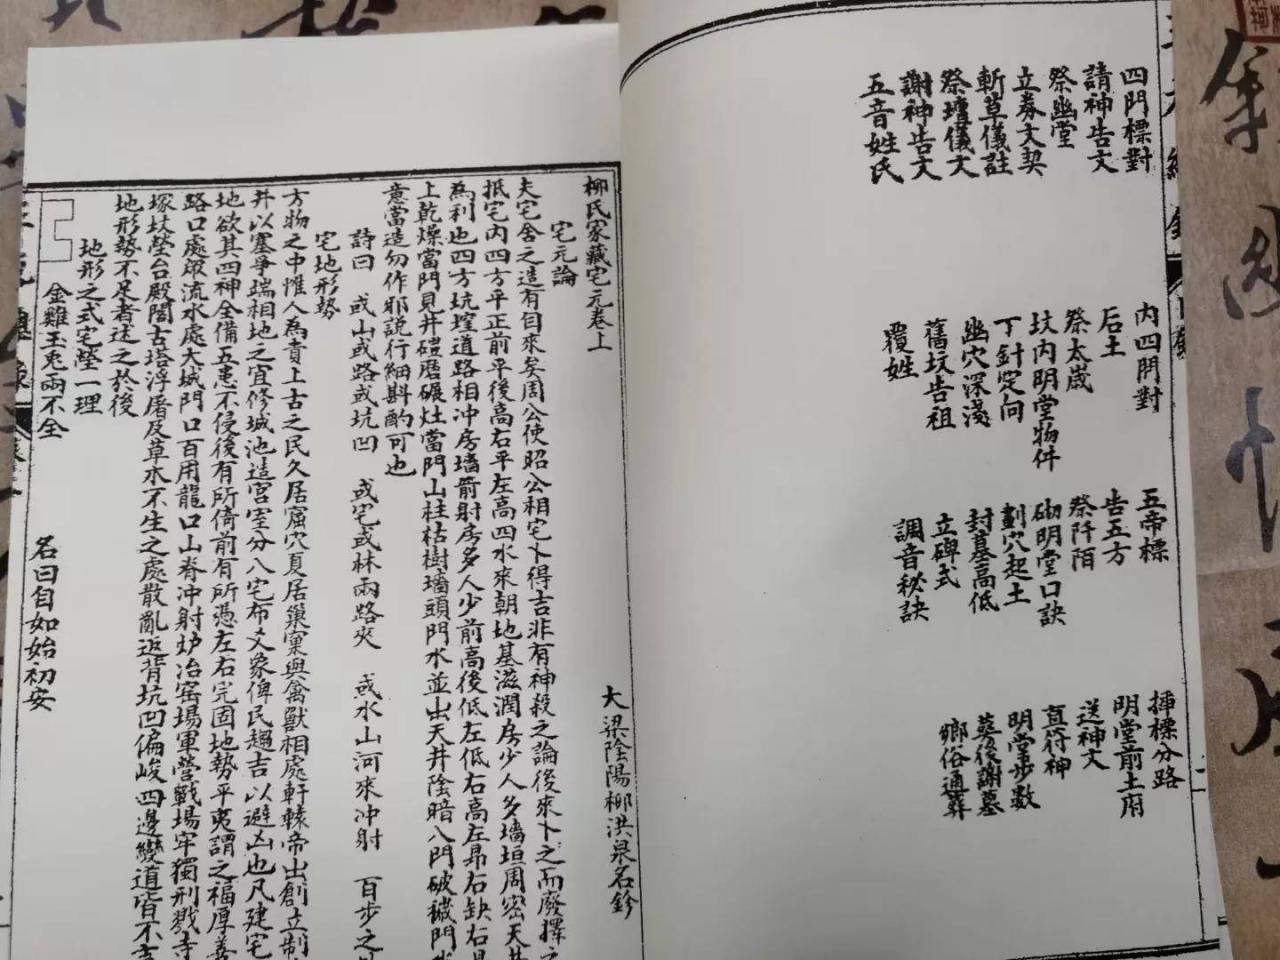 四門標對 內四門對 五帝標 揷標分路
請神告文 后土 告五方 明堂前土府
祭幽堂 祭太歲 祭阡陌 送神文
立券文契 坟內明堂物件 砌明堂口訣 直符神
斬草儀註 丁針定向 劃穴起土 明堂步數
祭壇儀文 幽穴深淺 封墓高低 葬後謝墓
謝神告文 舊坟告祖 立碑式 鄉俗通葬
五音姓氏 覆姓 調音秘訣
柳氏家藏宅元卷上
大梁陰陽柳洪泉名鉁
宅元論
夫宅舍之造有自來矣周公使昭公相宅卜得吉非有神殺之論後來卜之而廢擇之
抵宅內四方平正前平後高右平左高四水來朝地基滋潤房少人多墻垣周密天井
為利也四方坑堂道路相冲房墻箭射房多人少前高後低左低右高左昻右缺右昻
上乾燥當門見井磑磨碾灶當門山柱枯樹墻頭門水並出天井陰暗八門破穢門
意當造勿作邪說行細斟酌可也
詩曰 或山或路或坑凹 或宅或林兩路夾 或水山河來冲射 百步之
宅地形勢
方物之中惟人為貴上古之民久居窟穴夏居巢窠與禽獸相處軒轅帝出創立制
井以塞爭端相地之宜修城池造宮室分八宅布爻象俾民趨吉以避凶也凡建宅
地欲其四神全備五患不侵後有所倚前有所憑左右完固地勢平夷謂之福厚善
路口處眾流水處大城門口百用龍口山脊冲射炉冶窑場軍營戰場牢獨刑戮寺
塚坟塋台殿閣古塔浮屠及草水不生之處散亂返背坑凹偏峻四邊變道皆不吉
地形勢不足者述之於後
地形之式宅塋一理
金雞玉兎兩不全 名曰自如始初安